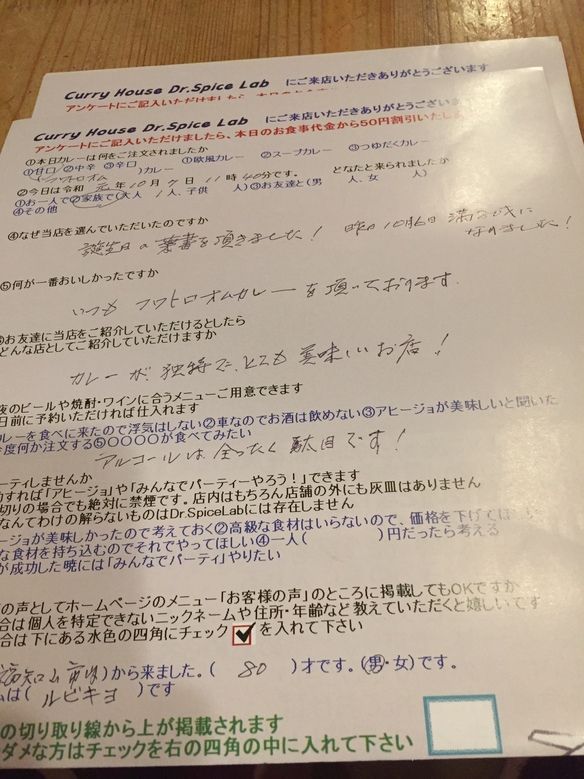 Curry House Dr.Spice Lab にご来店いただきありがとうございます
アンケートにご記入いただけましたら、本日の
Curry House Dr.Spice Lab にご来店いただきありがとうございま
アンケートにご記入いただけましたら、本日のお食事代金から50円割引いたしま
①本日カレーは何をご注文されましたか
①甘口 ②中辛 ③辛口 ①欧風カレー ②スープカレー ③つゆだくカレー
)カレー
②今日は令和 元 年 10月 7日 11時 40分です。 どなたと来られましたか
①お一人で②家族で(大人 1人、子供 人)③お友達と(男 人、女 人)
④その他
④なぜ当店を選んでいただいたのですか
誕生日の葉書を頂きました! 昨日10月6日 満80歳になりました!
⑤何が一番おいしかったですか
いつも フワトロオムカレーを頂いております.
お友達に当店をご紹介していただけるとしたら
どんな店としてご紹介していただけますか
カレーが独特で、とても美味しいお店!
夜のビールや焼酎・ワインに合うメニューご用意できます
日前に予約いただければ仕入れます
カレーを食べに来たので浮気はしない②車なのでお酒は飲めない③アヒージョが美味しいと聞いた
今度何か注文する⑤○○○○が食べてみたい
アルコールは全ったく駄目です!
ーティしませんか
すれば「アヒージョ」や「みんなでパーティーやろう!」できます
切りの場合でも絶対に禁煙です。店内はもちろん店舗の外にも灰皿はありません
なんてわけの解らないものはDr.SpiceLabには存在しません
ージョが美味しかったので考えておく②高級な食材はいらないので、価格を下げてほ
な食材を持ち込むのでそれでやってほしい④一人( )円だったら考える
が成功した暁には「みんなでパーティ」やりたい
の声としてホームページのメニュー「お客様の声」のところに掲載してもOKですか
合は個人を特定できないニックネームや住所・年齢など教えていただくと嬉しいです
合は下にある水色の四角にチェック を入れて下さい
福知山市内)から来ました。( 80 )才です。(男・女)です。
ムは( ルビキヨ )です
の切り取り線から上が掲載されます
ダメな方はチェックを右の四角の中に入れて下さい